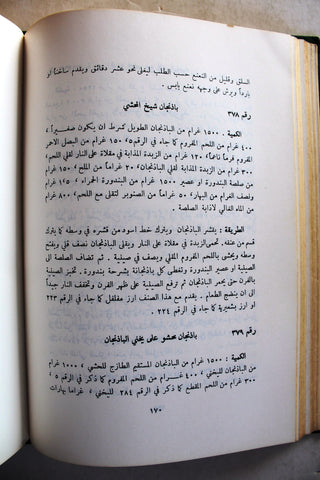 السلق وقليل من النعنع حسب الطلب ليغلى نحو عشر دقائق ويقدم ساخناً او
بارداً ويرش على وجهه نعنع يابس .
رقم ٣٧٨ باذنجان شيخ المحشي
الكمية : ١٥٠٠ غرام من الباذنجان الطويل بشرط ان يكون صغيراً ،
٤٠٠ غرام من اللحم المفروم كما جاء في الرقم ٥ ، ١٥٠ غرام من البصل الاحمر
المفروم فرماً ناعماً ، ١٢٠ غرام من الزبدة المذابة في مقلاة على النار لقلي اللحم ،
٣٠٠ غرام من الزبدة المذابة لقلي الباذنجان ، ٢٠ غراماً من الملح ، ١٥٠ غرام
من صلصة البندورة او عصير ١٥٠٠ غرام من البندورة الحمراء ، ١٥
ونصف الغرام من البهار ، ٥٠ غراماً من الصنوبر لتقلى مع اللحم ، ٨٠٠ غرام
من الماء الغالي لاذابة الصلصة .
الطريقة : يقشر الباذنجان ويترك خط اسود من قشره في وسطه كما يترك
قسم من عنقه . تحمى الزبدة في مقلاة على النار ويقلى الباذنجان نصف قلي ويفتح
في وسطه ويحشى باللحم ويصف في صينية . ثم تضاف الصلصة الى
الصينية او عصير البندورة وتغطى كل باذنجانة بشرحة بندورة . تخبز الصينية
بالفرن حتى يحمر الباذنجان ثم ترفع الصينية على ظهر الفرن وتخفف النار جيداً
الى ان ينضج الطعام . ويقدم مع هذا الصنف ارز مفلفل كما جاء في الرقم ٢٢٣
او ارز بشعيرية كما جاء في الرقم ٢٢٤ .
رقم ٣٧٩ باذنجان محشو على يخني الباذنجان
الكمية : ١٥٠٠ غرام من الباذنجان المستقيم الطازج للحشي ، ١٠٠٠ غرام
من الباذنجان لليخني ، ٤٠٠ غرام من اللحم المفروم كما ذكر في الرقم ٥ ،
٣٠٠ غرام من اللحم المقطع كما جاء في الرقم ٢٨٤ لليخني ، غراما بهارات
١٧٠